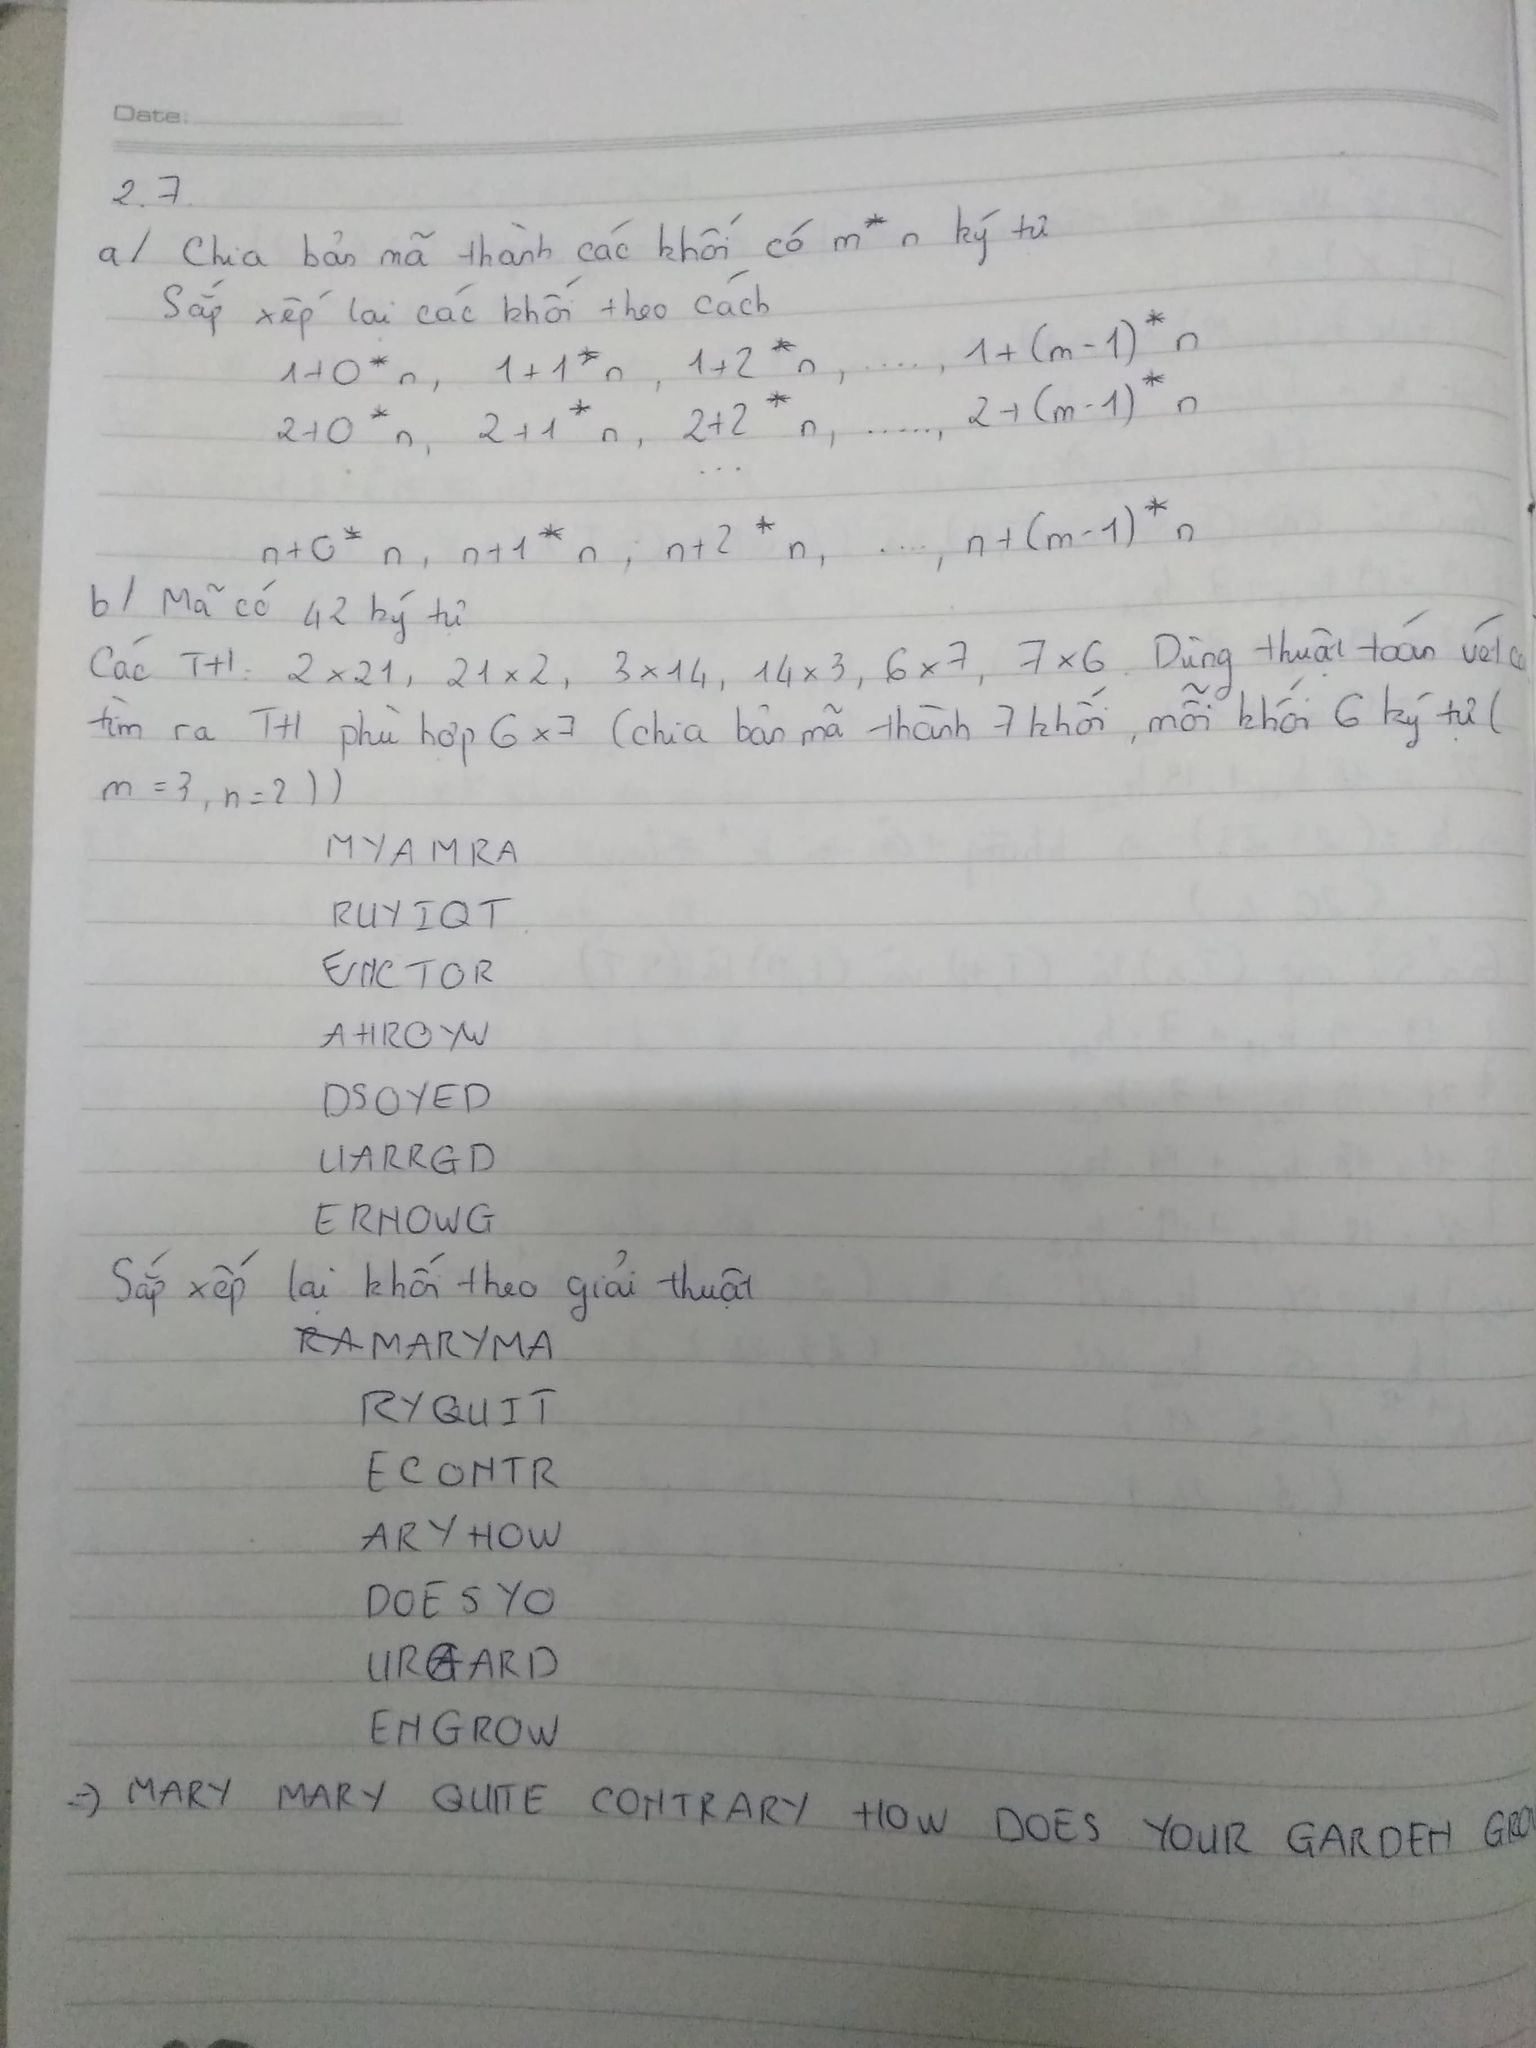 Date:
2.7
a/ Chia bản mã thành các khối có m*n ký tự
Sắp xếp lại các khối theo cách
1+0*n, 1+1*n, 1+2*n, ....., 1+(m-1)*n
2+0*n, 2+1*n, 2+2*n, ....., 2+(m-1)*n
...
n+0*n, n+1*n, n+2*n, ....., n+(m-1)*n
b/ Mã có 42 ký tự
Các TH: 2×21, 21×2, 3×14, 14×3, 6×7, 7×6. Dùng thuật toán vét
tìm ra TH phù hợp 6×7 (chia bản mã thành 7 khối, mỗi khối 6 ký tự (
m=3, n=2))
MYAMRA
RUYIQT
ENCTOR
AHROYW
DSOYED
UARRGD
ERNOWG
Sắp xếp lại khối theo giải thuật
MARYMA
RYQUIT
ECONTR
ARYHOW
DOESYO
URGARD
ENGROW
=> MARY MARY QUITE CONTRARY HOW DOES YOUR GARDEN GRO